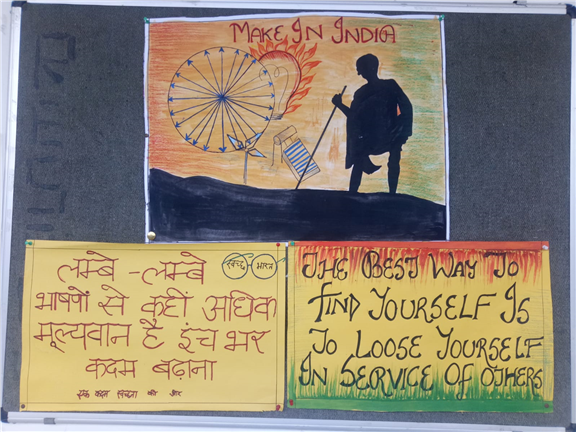 MAKE IN INDIA
लम्बे - लम्बे
स्वच्छ भारत
भाषणों से कहीं अधिक
मूल्यवान है इंच भर
कदम बढ़ाना
एक कदम स्वच्छता की ओर
THE BEST WAY TO
FIND YOURSELF IS
TO LOOSE YOURSELF
IN SERVICE OF OTHERS